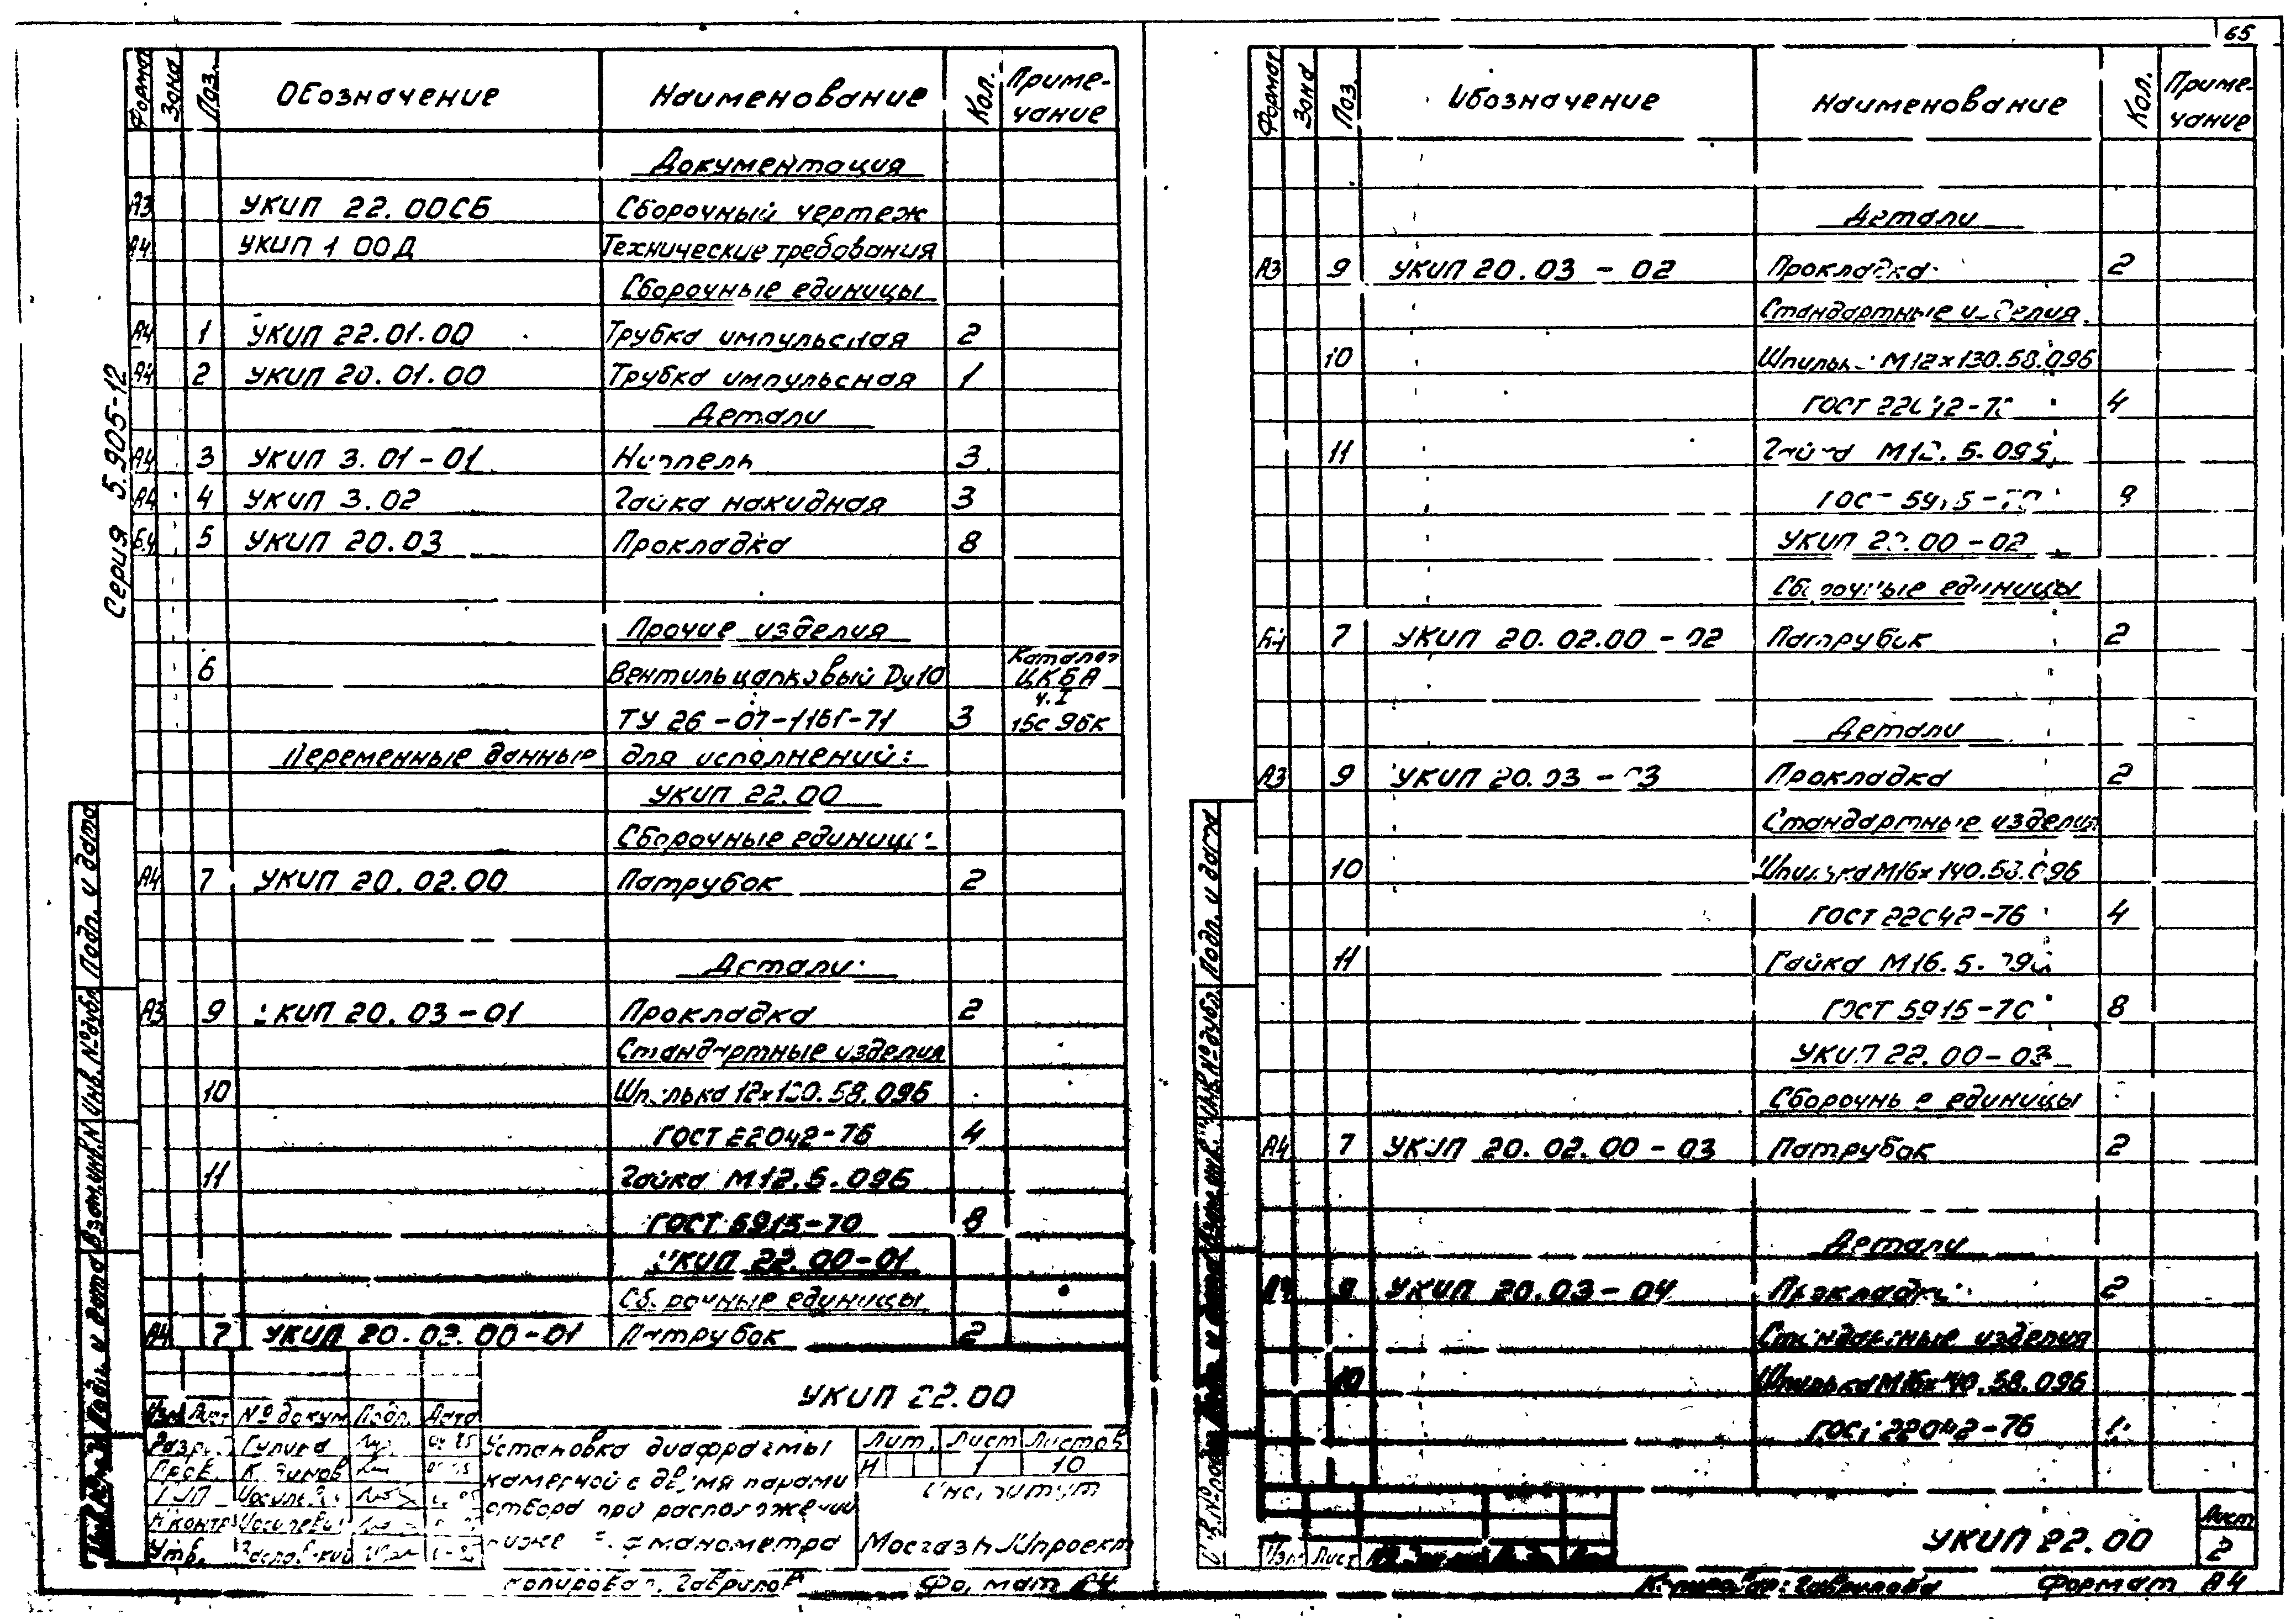 65
Серия 5.905-12
Формат Зона Поз. Обозначение Наименование Кол. Примечание
Документация
А3 УКИП 22.00СБ Сборочный чертеж
А4 УКИП 1 00Д Технические требования
Сборочные единицы
А4 1 УКИП 22.01.00 Трубка импульсная 2
А4 2 УКИП 20.01.00 Трубка импульсная 1
Детали
А4 3 УКИП 3.01-01 Ниппель 3
А4 4 УКИП 3.02 Гайка накидная 3
Б.Ч 5 УКИП 20.03 Прокладка 8
Прочие изделия
6 Вентиль цапковый Dу10 Каталог ЦКБА ч.I
ТУ 26-07-1161-71 3 15с 96к
Переменные данные для исполнений:
УКИП 22.00
Сборочные единицы
А4 7 УКИП 20.02.00 Патрубок 2
Детали
А3 9 УКИП 20.03-01 Прокладка 2
Стандартные изделия
10 Шпилька 12х130.58.096
ГОСТ 22042-76 4
11 Гайка М12.5.096
ГОСТ 5915-70 8
УКИП 22.00-01
Сборочные единицы
А4 7 УКИП 20.02.00-01 Патрубок 2
УКИП 22.00
Изм Лист № докум Подп. Дата
Установка диафрагмы
камерной с двумя парами
отбора при расположении
ниже дифманометра
Лит. Лист Листов
И 1 10
Институт
МосгазНИИпроект
Разр.
Пров.
ГИП
Н.контр
Утв.
Копировал: Гаврилова Формат А4
Подп. и дата
Инв. № дубл.
Взам. инв. №
Подп. и дата
Формат Зона Поз. Обозначение Наименование Кол. Примечание
Детали
А3 9 УКИП 20.03-02 Прокладка 2
Стандартные изделия
10 Шпилька М12х130.58.096
ГОСТ 22042-76 4
11 Гайка М12.5.096
ГОСТ 5915-70 8
УКИП 22.00-02
Сборочные единицы
А4 7 УКИП 20.02.00-02 Патрубок 2
Детали
А3 9 УКИП 20.03-03 Прокладка 2
Стандартные изделия
10 Шпилька М16х140.58.096
ГОСТ 22042-76 4
11 Гайка М16.5.096
ГОСТ 5915-70 8
УКИП 22.00-03
Сборочные единицы
А4 7 УКИП 20.02.00-03 Патрубок 2
Детали
9 УКИП 20.03-04 Прокладка 2
Стандартные изделия
10 Шпилька М16х140.58.096
ГОСТ 22042-76
УКИП 22.00
Лист
2
Изм Лист
Копировал: Гаврилова Формат А4
Подп. и дата
Инв. № дубл.
Взам. инв. №
Подп. и дата